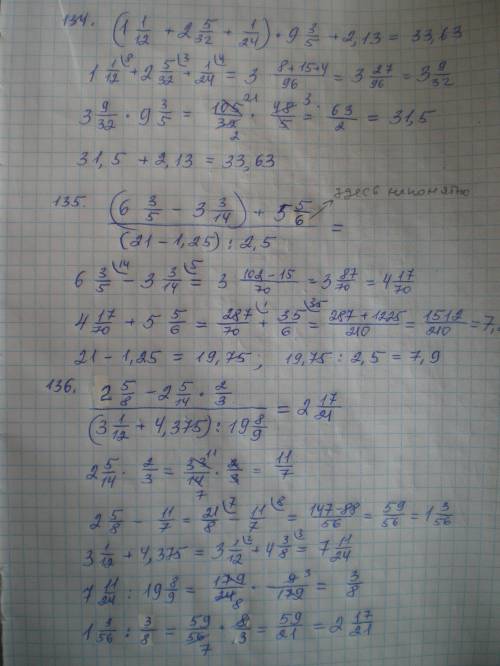 134. (1 1/12 + 2 5/32 + 1/24) · 9 3/5 + 2,13 = 33,63
1 1/12 + 2 5/32 + 1/24 = 3 8+15+4/96 = 3 27/96 = 3 9/32
3 9/32 · 9 3/5 = 105/32 · 48/5 = 63/2 = 31,5
31,5 + 2,13 = 33,63
здесь непонятно
135. (6 3/5 − 3 3/14) + 5 5/6 / (21 − 1,25) : 2,5 =
6 3/5 − 3 3/14 = 3 102−15/70 = 3 87/70 = 4 17/70
4 17/70 + 5 5/6 = 287/70 + 35/6 = 287+1225/210 = 1512/210 = 7,
21 − 1,25 = 19,75; 19,75 : 2,5 = 7,9
136. 2 5/8 − 2 5/14 · 2/3 / (3 1/12 + 4,375) : 19 8/9 = 2 17/21
2 5/14 · 2/3 = 33/14 · 2/3 = 11/7
2 5/8 − 11/7 = 21/8 − 11/7 = 147−88/56 = 59/56 = 1 3/56
3 1/12 + 4,375 = 3 1/12 + 4 3/8 = 7 11/24
7 11/24 : 19 8/9 = 179/24 · 9/179 = 3/8
1 3/56 : 3/8 = 59/56 · 8/3 = 59/21 = 2 17/21